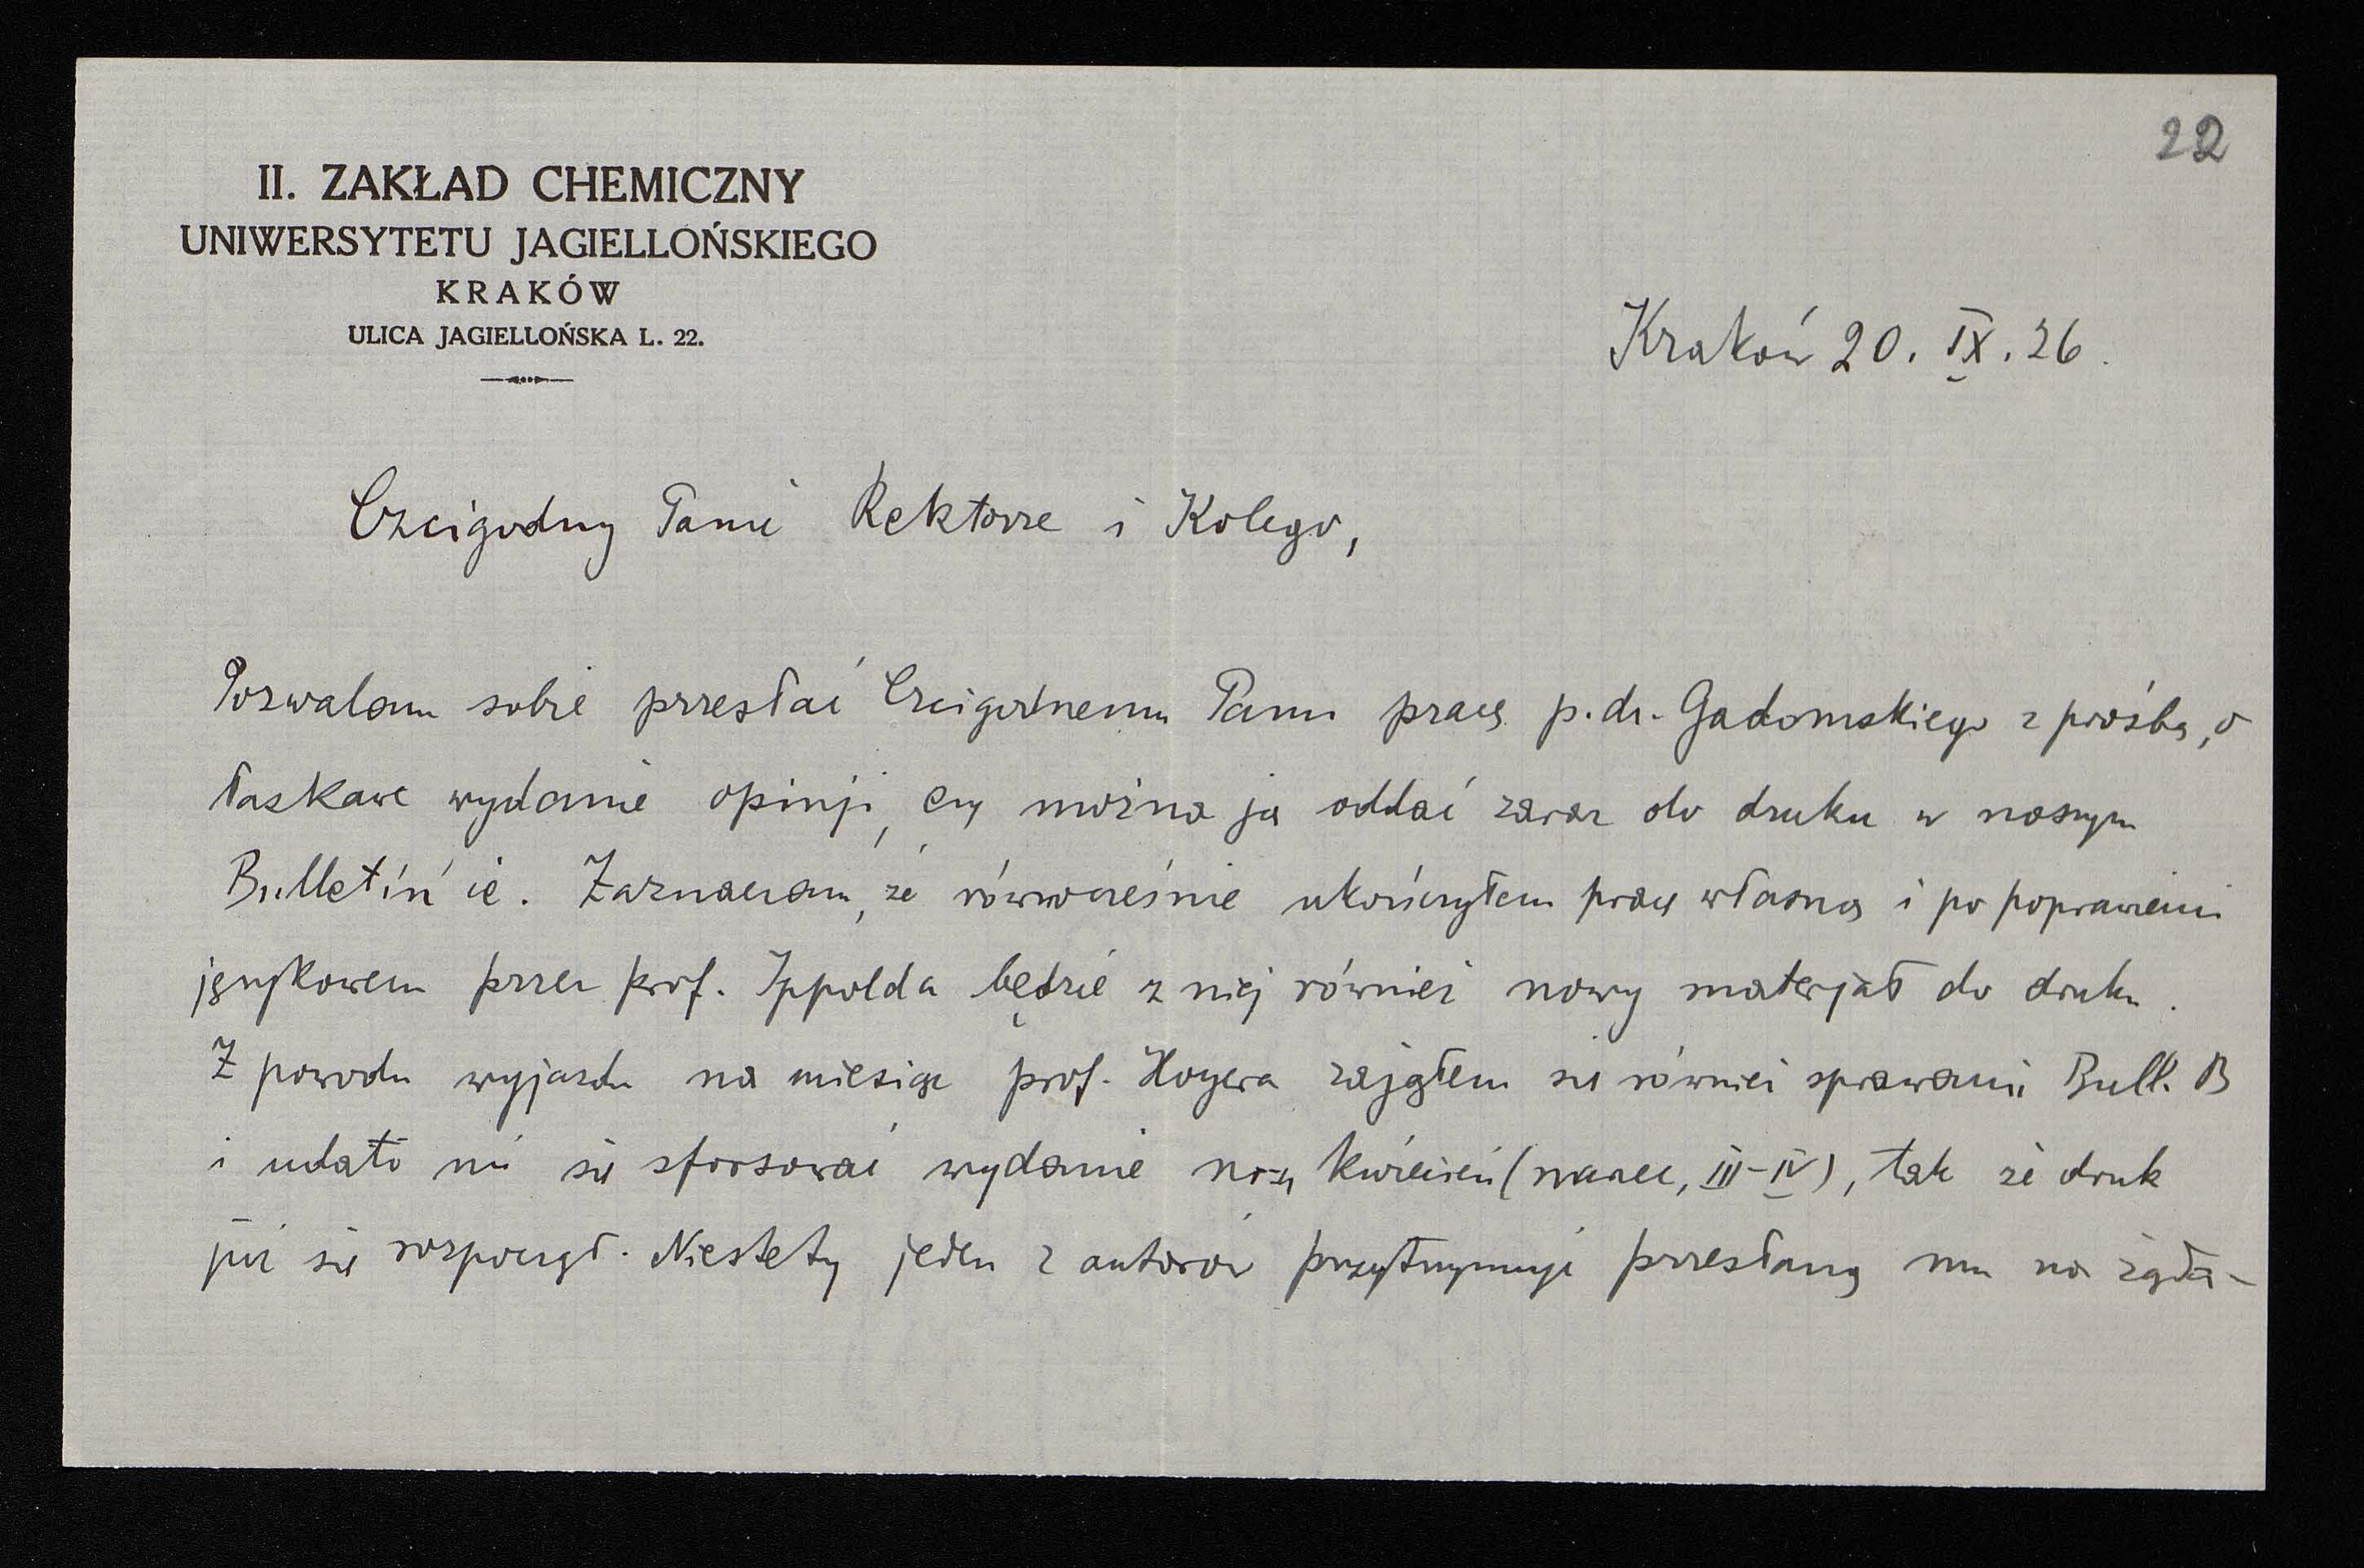 22
II. ZAKŁAD CHEMICZNY
UNIWERSYTETU JAGIELLOŃSKIEGO
KRAKÓW
ULICA JAGIELLOŃSKA L. 22.
Kraków 20. IX. 26.
Czcigodny Panie Rektorze i Kolego,
Pozwalam sobie przesłać Czcigodnemu Panu pracę p. dr. Gadomskiego z prośbą, o
łaskawe wydanie opinji, czy można ją oddać zaraz do druku w naszym
Bulletin'ie. Zaznaczam, że równocześnie ukończyłem pracę własną i po poprawieniu
językowem przez prof. Ippolda będzie z niej również nowy materjał do druku.
Z powodu wyjazdu na miesiąc prof. Hoyera zająłem się również sprawami Bull. B
i udało mi się sforsować wydanie kwiecień (marzec, III-IV), tak że druk
już się rozpoczął. Niestety jeden z autorów przytrzymuje przesłaną mu na żąda-